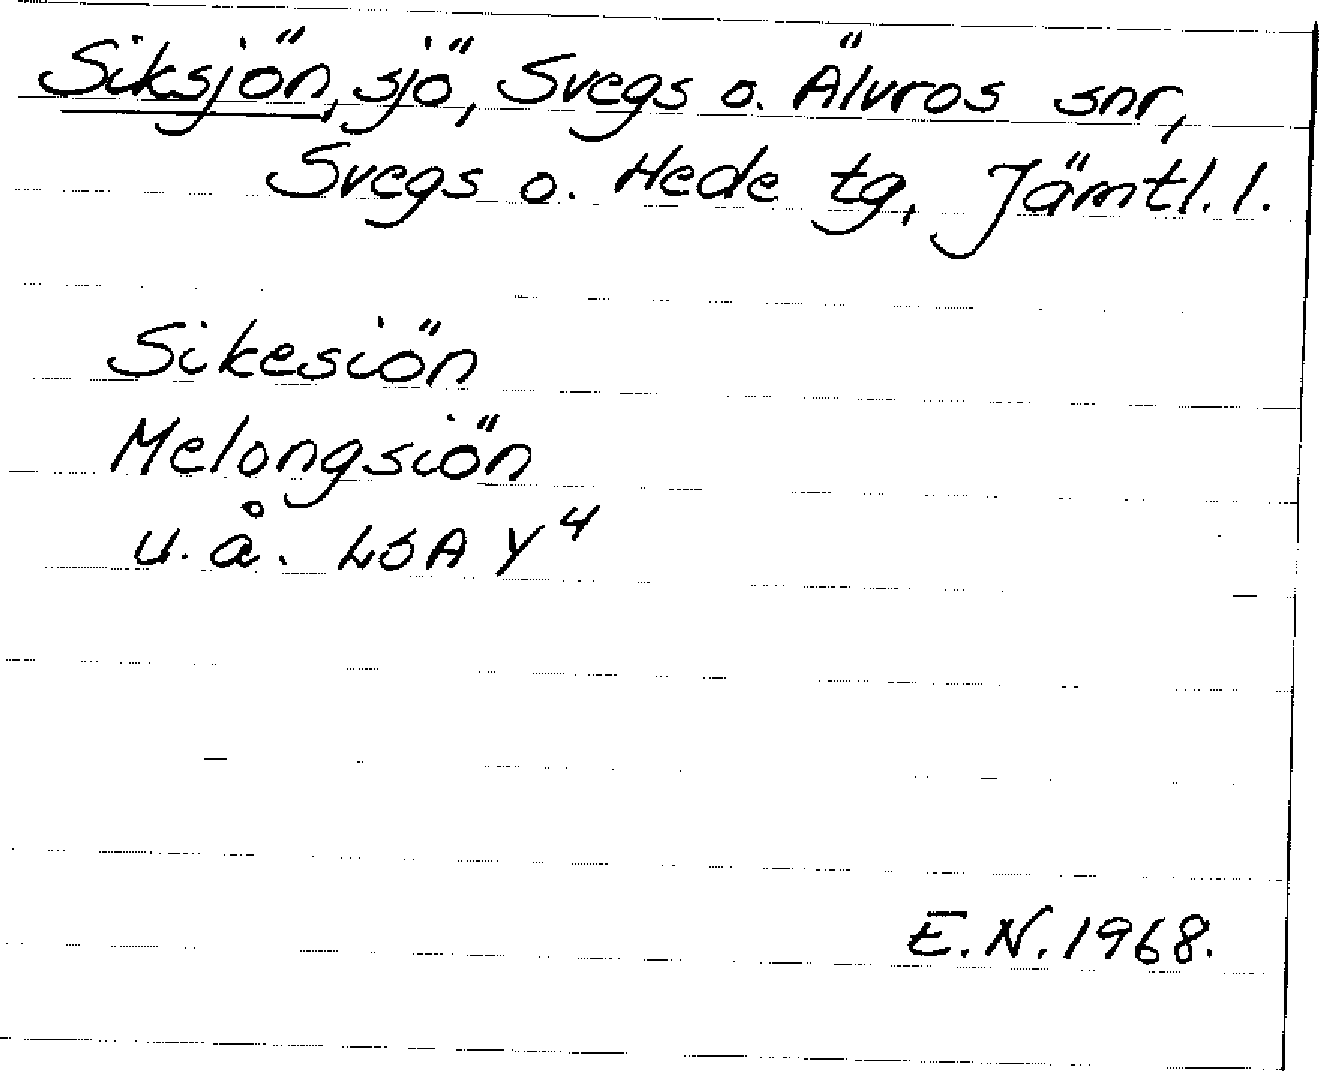 Siksjön, sjö, Svegs o. Älvros snr,
Svegs o. Hede tg, Jämtl. l.
Sikesiön
Melongsiön
u. å. LSA Y4
E.N. 1968.